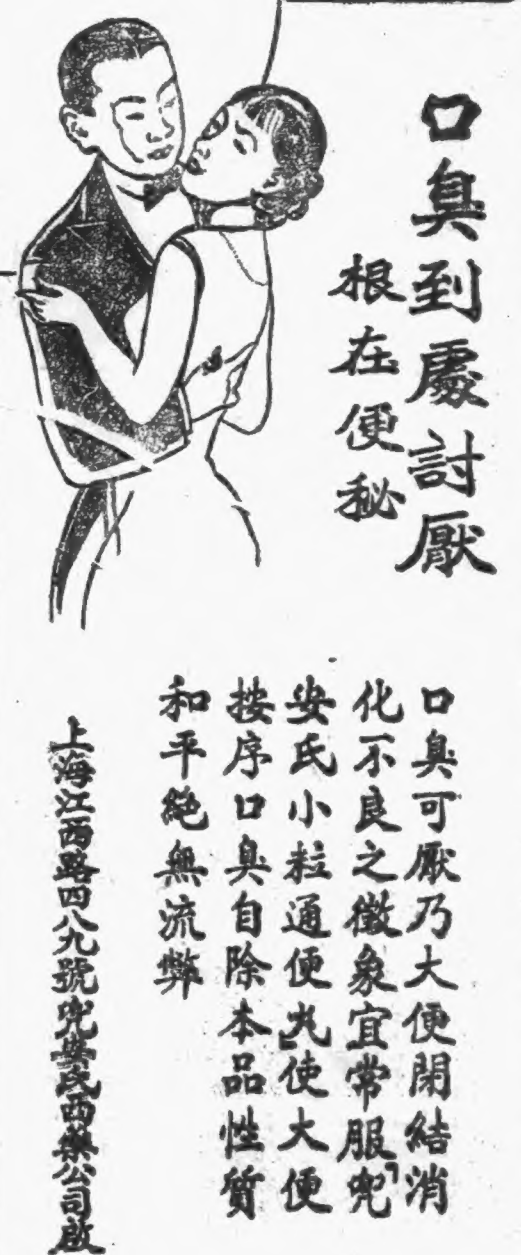 口臭到處討厭
根在便秘
口臭可厭乃大便閉結消
化不良之徵象宜常服「兜
安氏小粒通便丸」使大便
按序口臭自除本品性質
和平絕無流弊
上海江西路四八九號兜安氏西藥公司啟